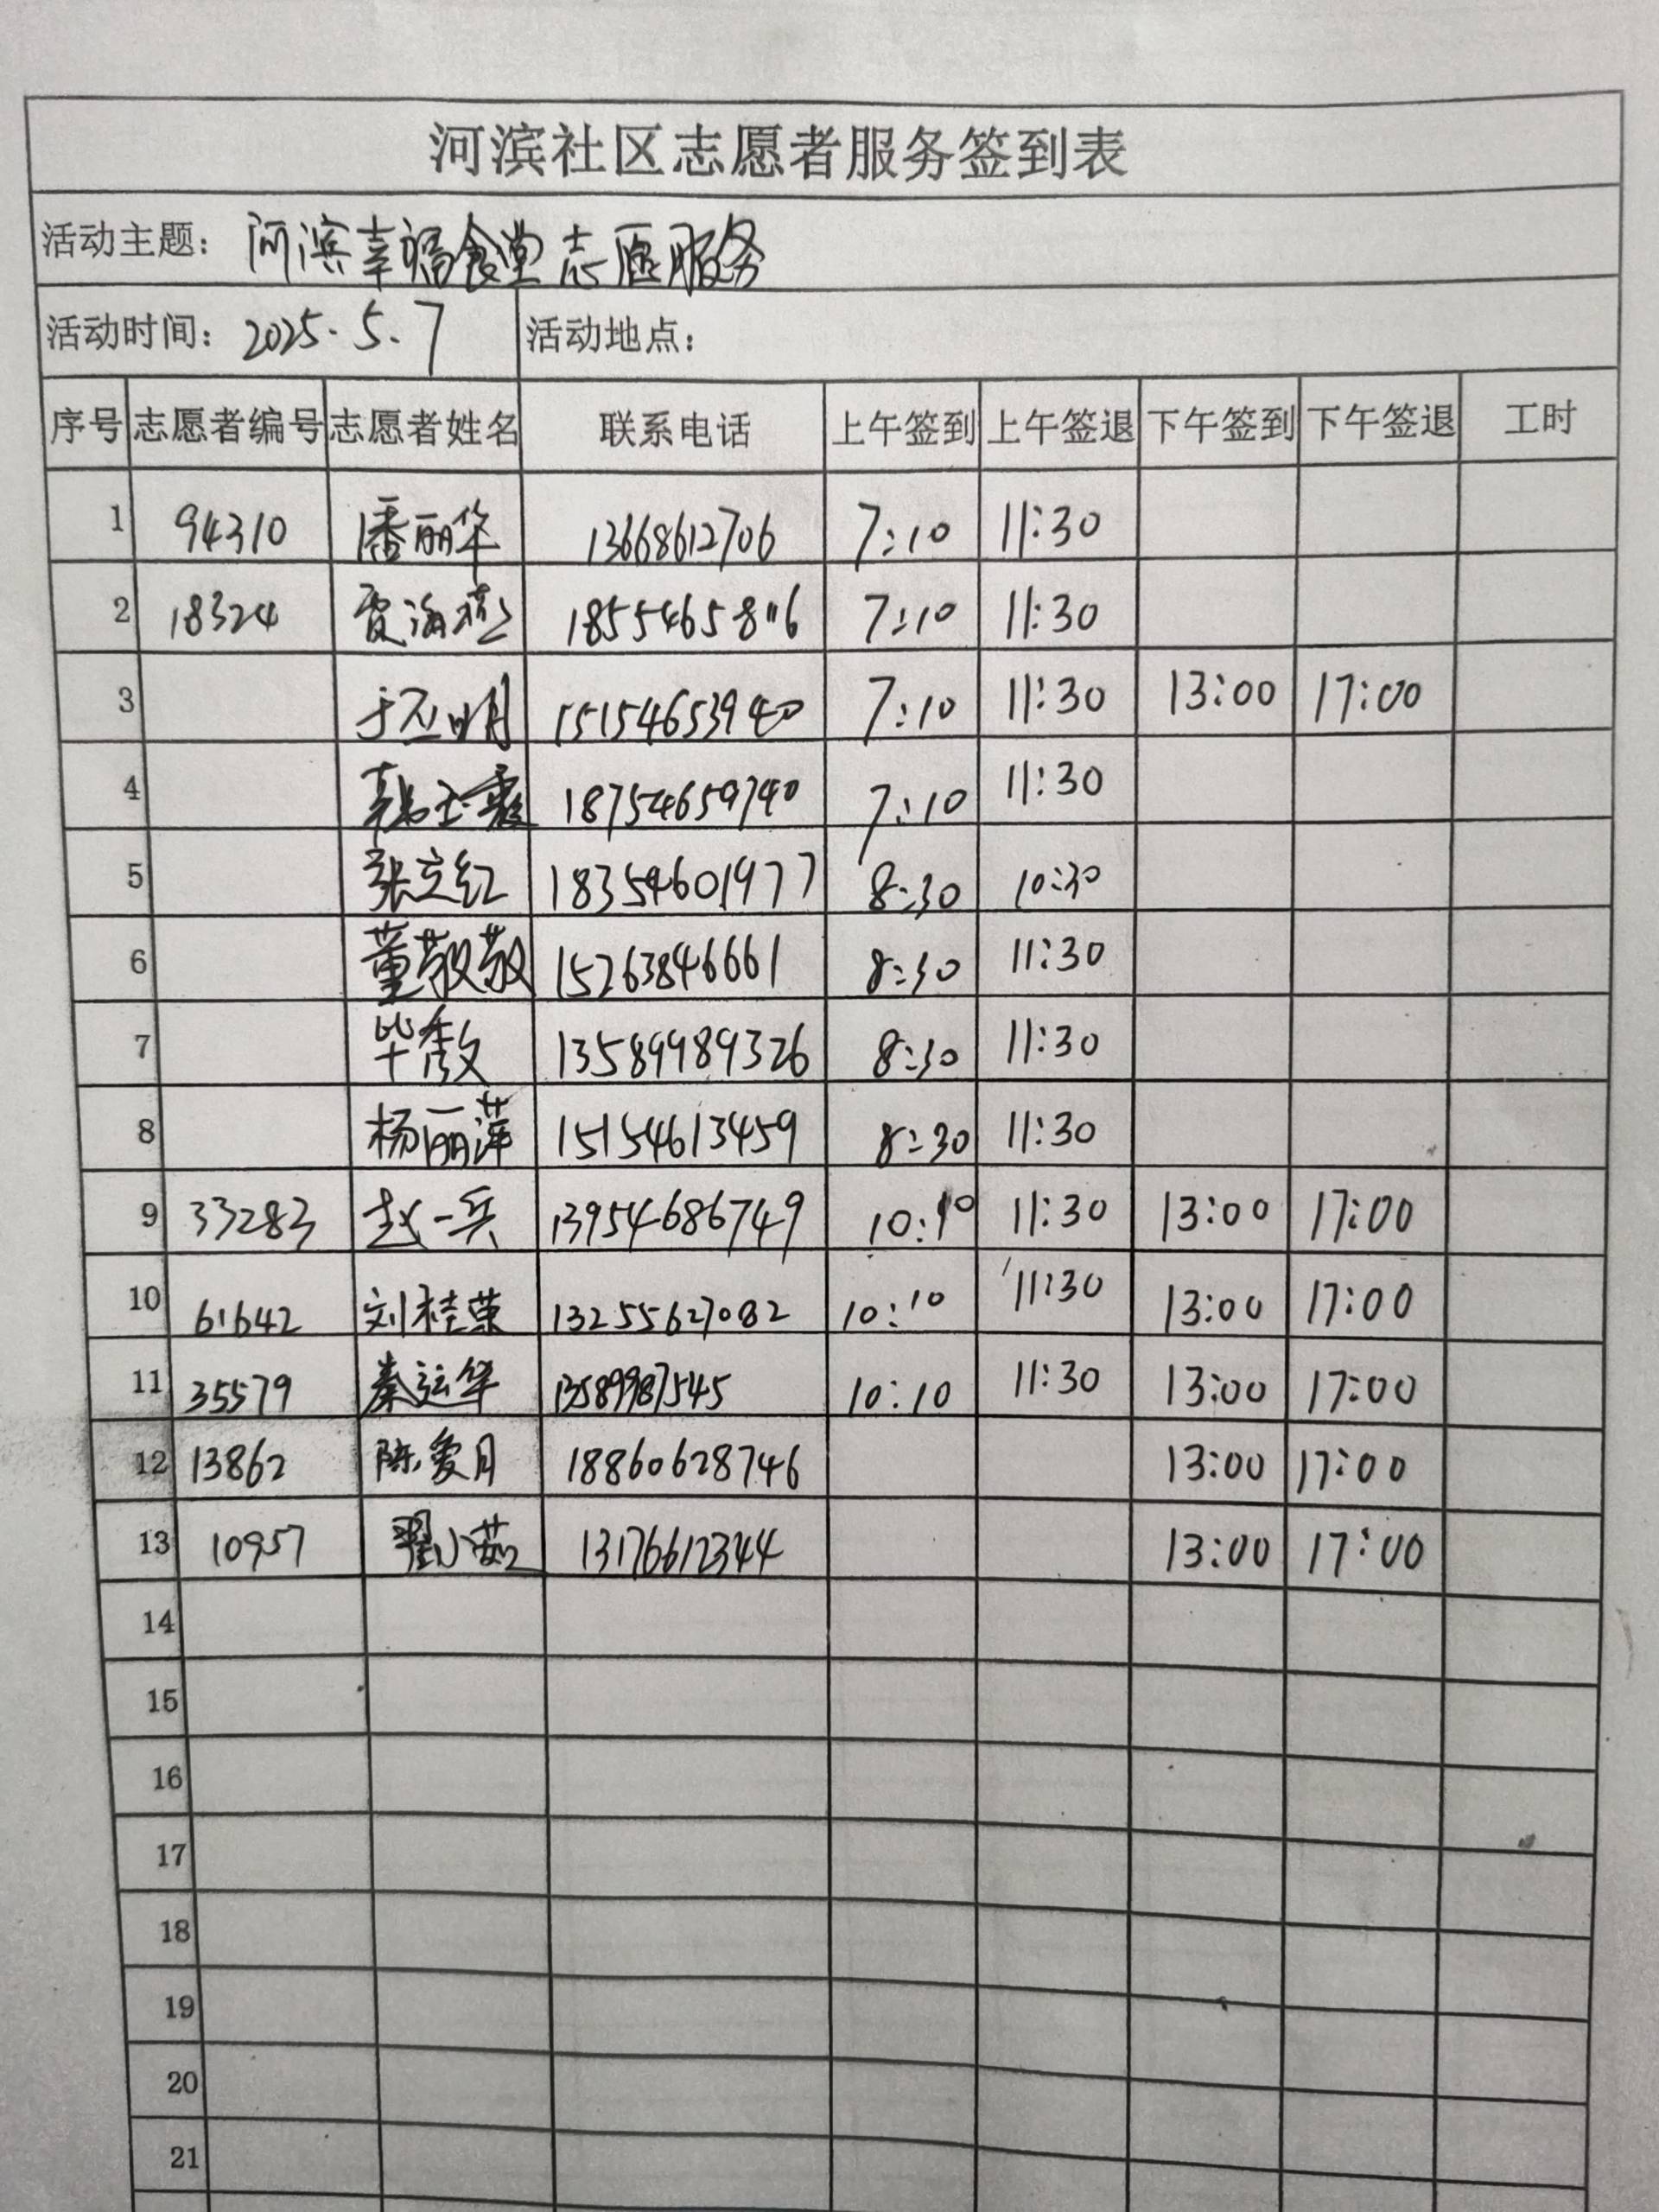 河滨社区志愿者服务签到表
活动主题： 河滨幸福食堂志愿服务
活动时间： 2025.5.7 活动地点：
序号 志愿者编号 志愿者姓名 联系电话 上午签到 上午签退 下午签到 下午签退 工时
1 94310 潘丽华 13668612706 7:10 11:30
2 18324 海燕 7:10 11:30
3 于应明 15154653940 7:10 11:30 13:00 17:00
4 韩玉霞 18754659740 7:10 11:30
5 张立红 18354601977 8:30 10:30
6 董敬敬 15263846661 8:30 11:30
7 毕秀文 13589989326 8:30 11:30
8 杨丽萍 15154613459 8:30 11:30
9 33283 赵一兵 13954686749 10:10 11:30 13:00 17:00
10 61642 刘桂荣 13255627082 10:10 11:30 13:00 17:00
11 35579 秦运华 13589987545 10:10 11:30 13:00 17:00
12 13862 陈爱月 18860628746 13:00 17:00
13 10957 翟小茹 13176612344 13:00 17:00
14
15
16
17
18
19
20
21